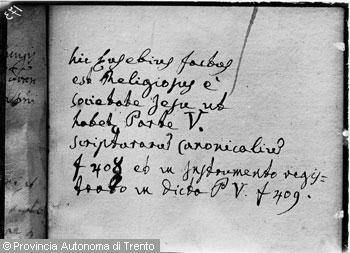 hic Eusebius factus
est Religiosus è
societate Jesu ut
habet Parte V.
scripturarum Canonicalium
f 408 et in Instrumento regis-
trato in dicto P V. f 409.
© Provincia Autonoma di Trento